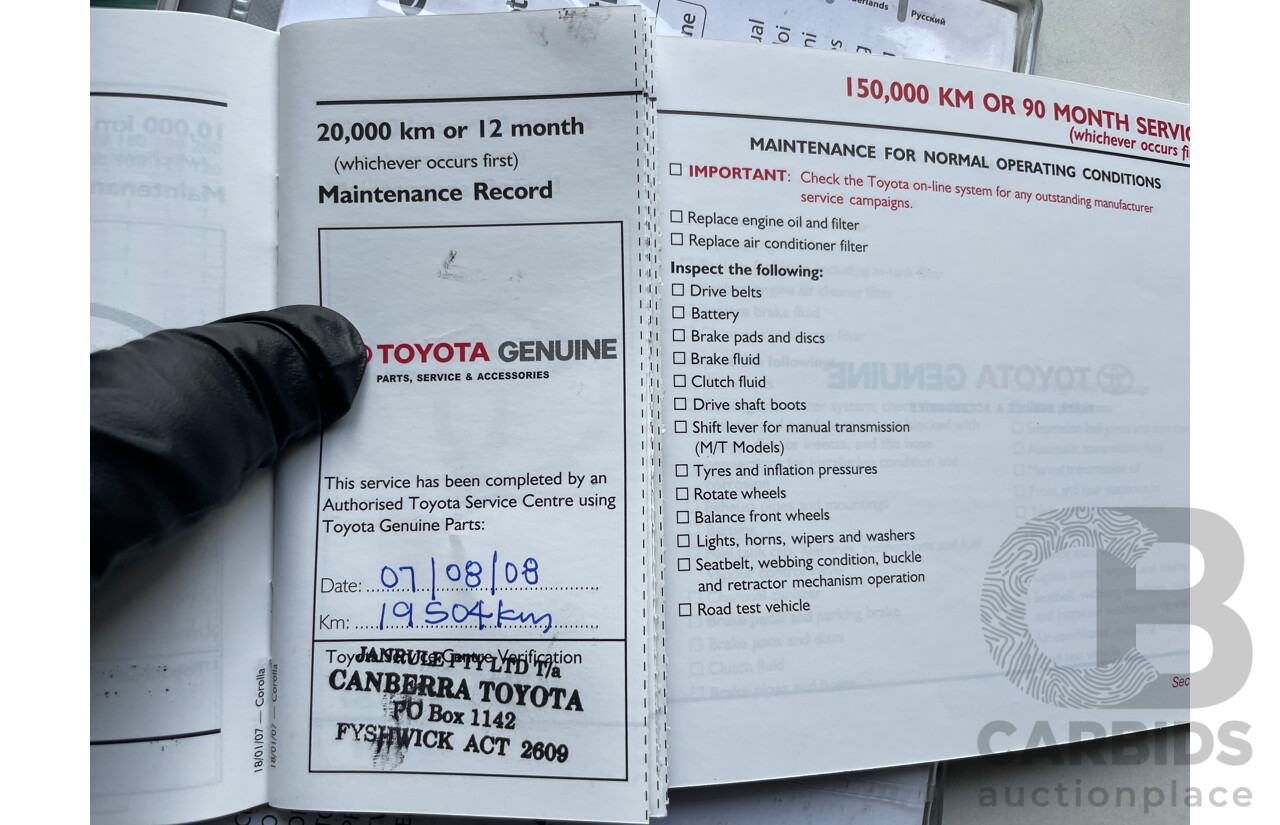 20,000 km or 12 month
(whichever occurs first)
Maintenance Record
TOYOTA GENUINE
PARTS, SERVICE & ACCESSORIES
This service has been completed by an
Authorised Toyota Service Centre using
Toyota Genuine Parts:
Date: 07/08/08
Km: 19504km
Toyota Service Centre Verification
JANRULE PTY LTD T/a
CANBERRA TOYOTA
PO Box 1142
FYSHWICK ACT 2609
18/01/07 — Corolla
18/01/07 — Corolla
Русский
150,000 KM OR 90 MONTH SERVIC
(whichever occurs fi
MAINTENANCE FOR NORMAL OPERATING CONDITIONS
IMPORTANT: Check the Toyota on-line system for any outstanding manufacturer
service campaigns.
Replace engine oil and filter
Replace air conditioner filter
Inspect the following:
Drive belts
Battery
Brake pads and discs
Brake fluid
Clutch fluid
Drive shaft boots
Shift lever for manual transmission
(M/T Models)
Tyres and inflation pressures
Rotate wheels
Balance front wheels
Lights, horns, wipers and washers
Seatbelt, webbing condition, buckle
and retractor mechanism operation
Road test vehicle
Sec
CARBIDS
auctionplace